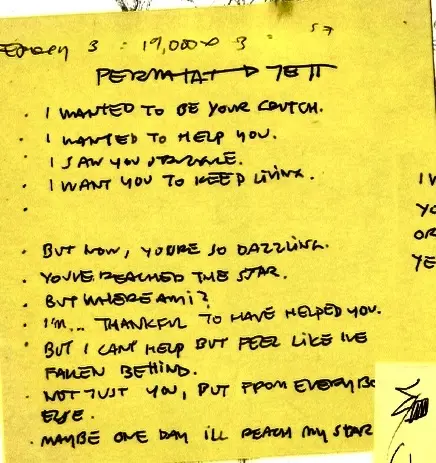 3 : 19,000 x 3 : 57
· I WANTED TO BE YOUR CRUTCH.
· I WANTED TO HELP YOU.
· I SAW YOU STRUGGLE.
· I WANT YOU TO KEEP LIVING.
·
· BUT NOW, YOU'RE SO DAZZLING.
· YOU'VE REACHED THE STAR.
· BUT WHERE AM I?
· I'M... THANKFUL TO HAVE HELPED YOU.
· BUT I CAN'T HELP BUT FEEL LIKE I'VE
FALLEN BEHIND.
· NOT JUST YOU, BUT FROM EVERYBO
ELSE.
· MAYBE ONE DAY I'LL REACH MY STAR
I W
YO
OR
YE